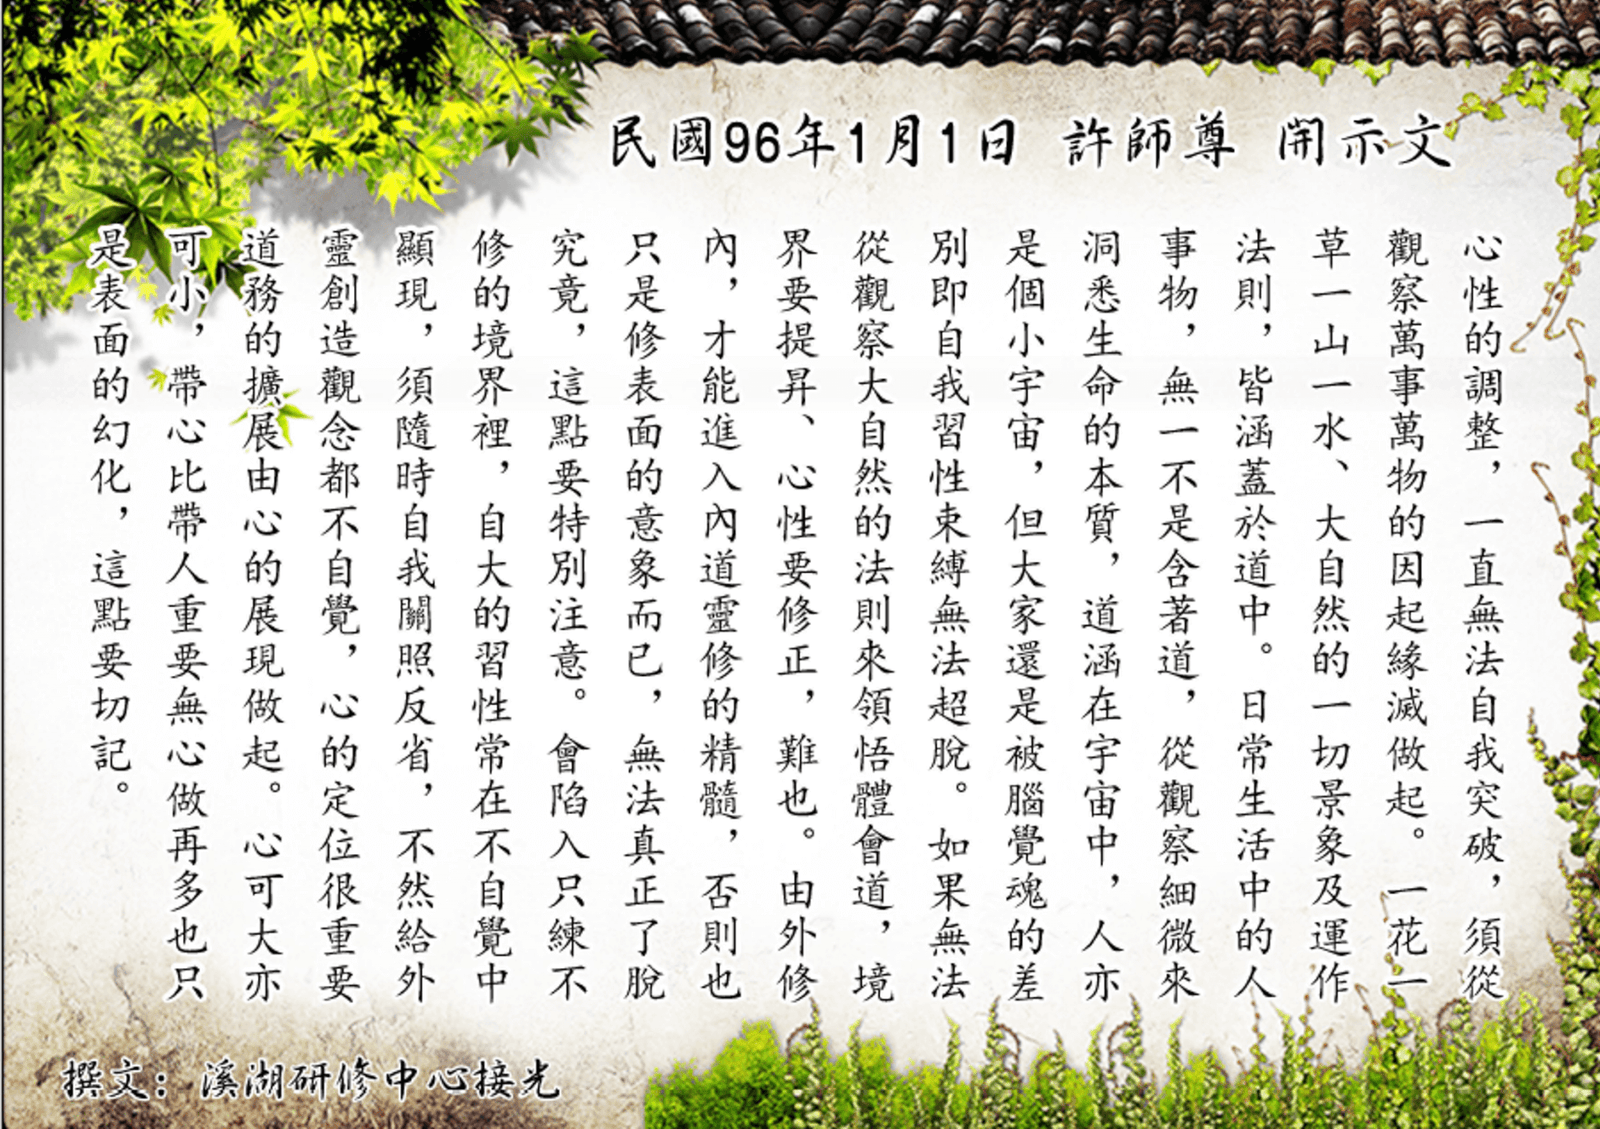 民國96年1月1日 許師尊 開示文
心性的調整，一直無法自我突破，須從
觀察萬事萬物的因起緣滅做起。一花一
草一山一水、大自然的一切景象及運作
法則，皆涵蓋於道中。日常生活中的人
事物，無一不是含著道，從觀察細微來
洞悉生命的本質，道涵在宇宙中，人亦
是個小宇宙，但大家還是被腦覺魂的差
別即自我習性束縛無法超脫。如果無法
從觀察大自然的法則來領悟體會道，境
界要提昇、心性要修正，難也。由外修
內，才能進入內道靈修的精髓，否則也
只是修表面的意象而已，無法真正了脫
究竟，這點要特別注意。會陷入只練不
修的境界裡，自大的習性常在不自覺中
顯現，須隨時自我關照反省，不然給外
靈創造觀念都不自覺，心的定位很重要
道務的擴展由心的展現做起。心可大亦
可小，帶心比帶人重要無心做再多也只
是表面的幻化，這點要切記。
撰文：溪湖研修中心接光